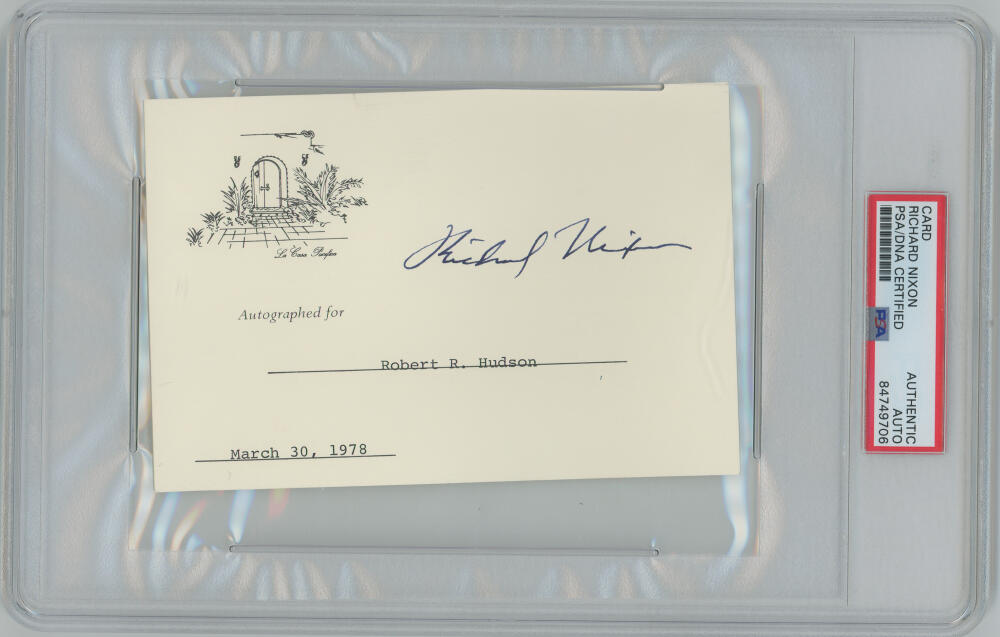 La Casa Pacifica
Richard Nixon
Autographed for
Robert R. Hudson
March 30, 1978
CARD
RICHARD NIXON
PSA/DNA CERTIFIED
PSA
AUTHENTIC
AUTO
84749706